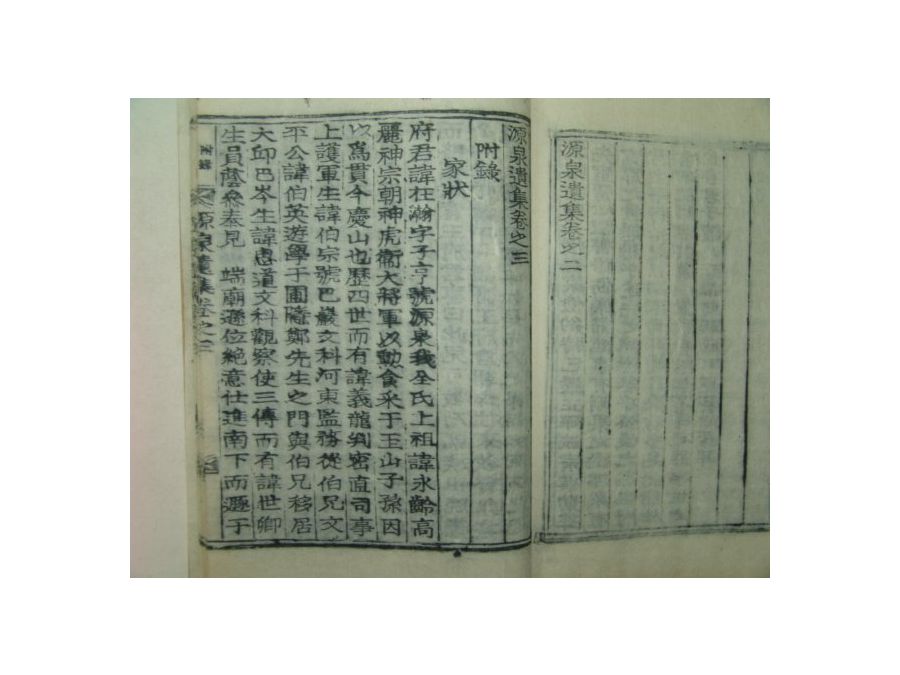 源泉遺集卷之二
源泉遺集卷之三
附錄
家狀
府君諱在瀚字子亨號源泉我全氏上祖諱永齡高
麗神宗朝神虎衞大將軍以勳食采于玉山子孫因
以爲貫今慶山也歷四世而有諱義龍判密直司事
上護軍生諱伯宗號巴巖文科河東監務從伯兄文
平公諱伯英遊學于圃隱鄭先生之門與伯兄移居
大邱巴岑生諱惠道文科觀察使三傳而有諱世卿
生員蔭叅奉見 端廟遜位絶意仕進南下而遯于
源泉遺集卷之三